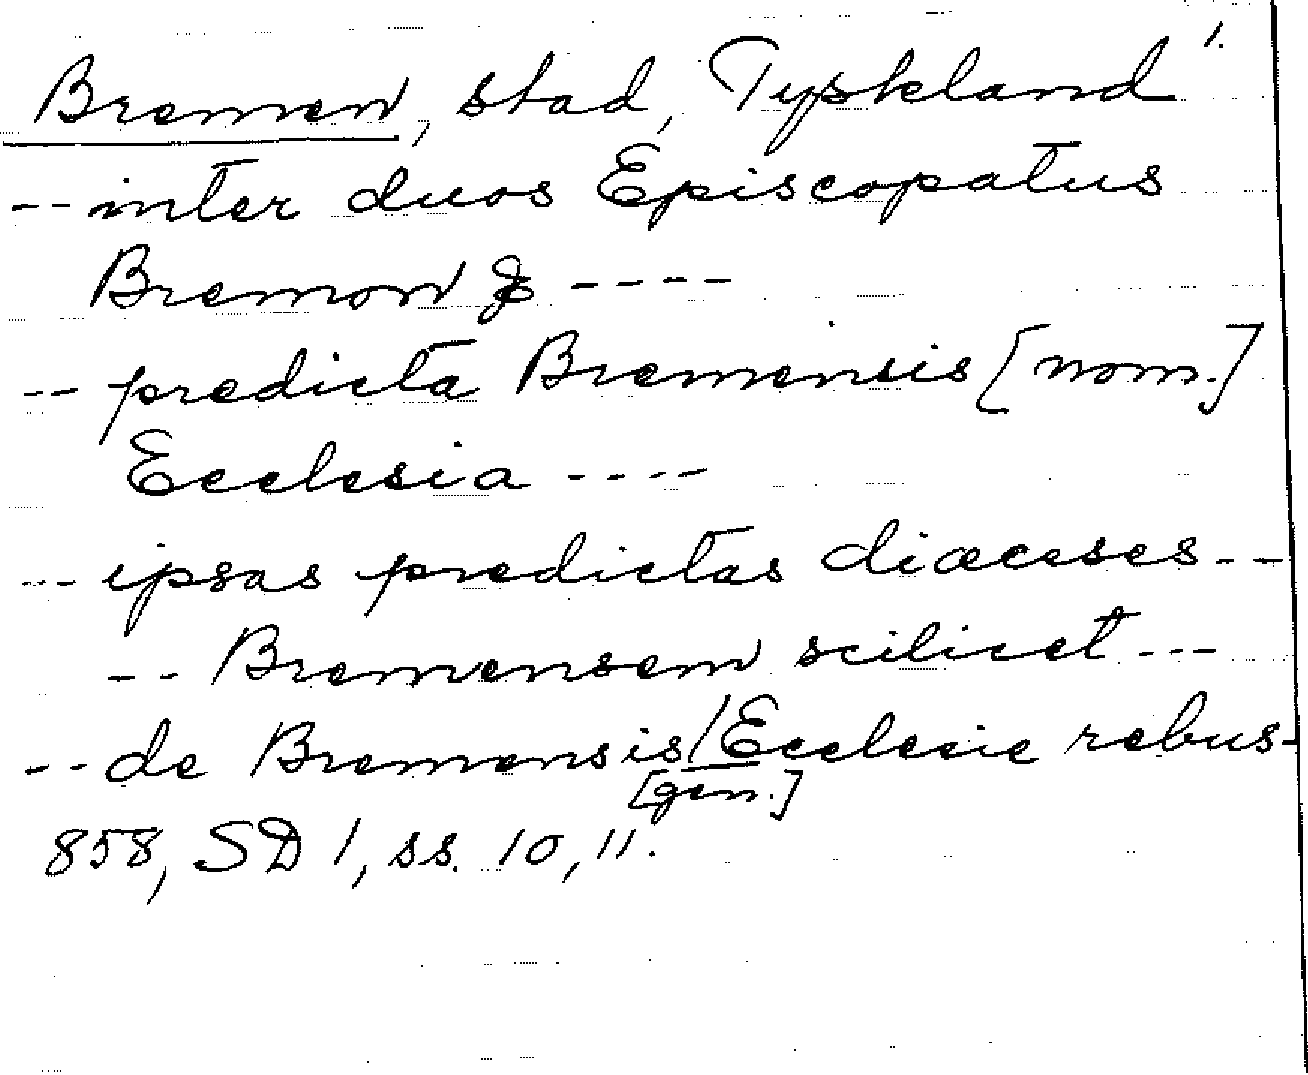 Bremen, stad, Tyskland 1.
-- inter duos Episcopatus
Bremon & ----
-- predicta Bremensis [nom.]
Ecclesia ----
--- ipsas predictas diœceses ---
-- Bremensem scilicet ---
-- de Bremensis/Ecclesie rebus-
[gen.]
858, SD 1, ss. 10, 11.